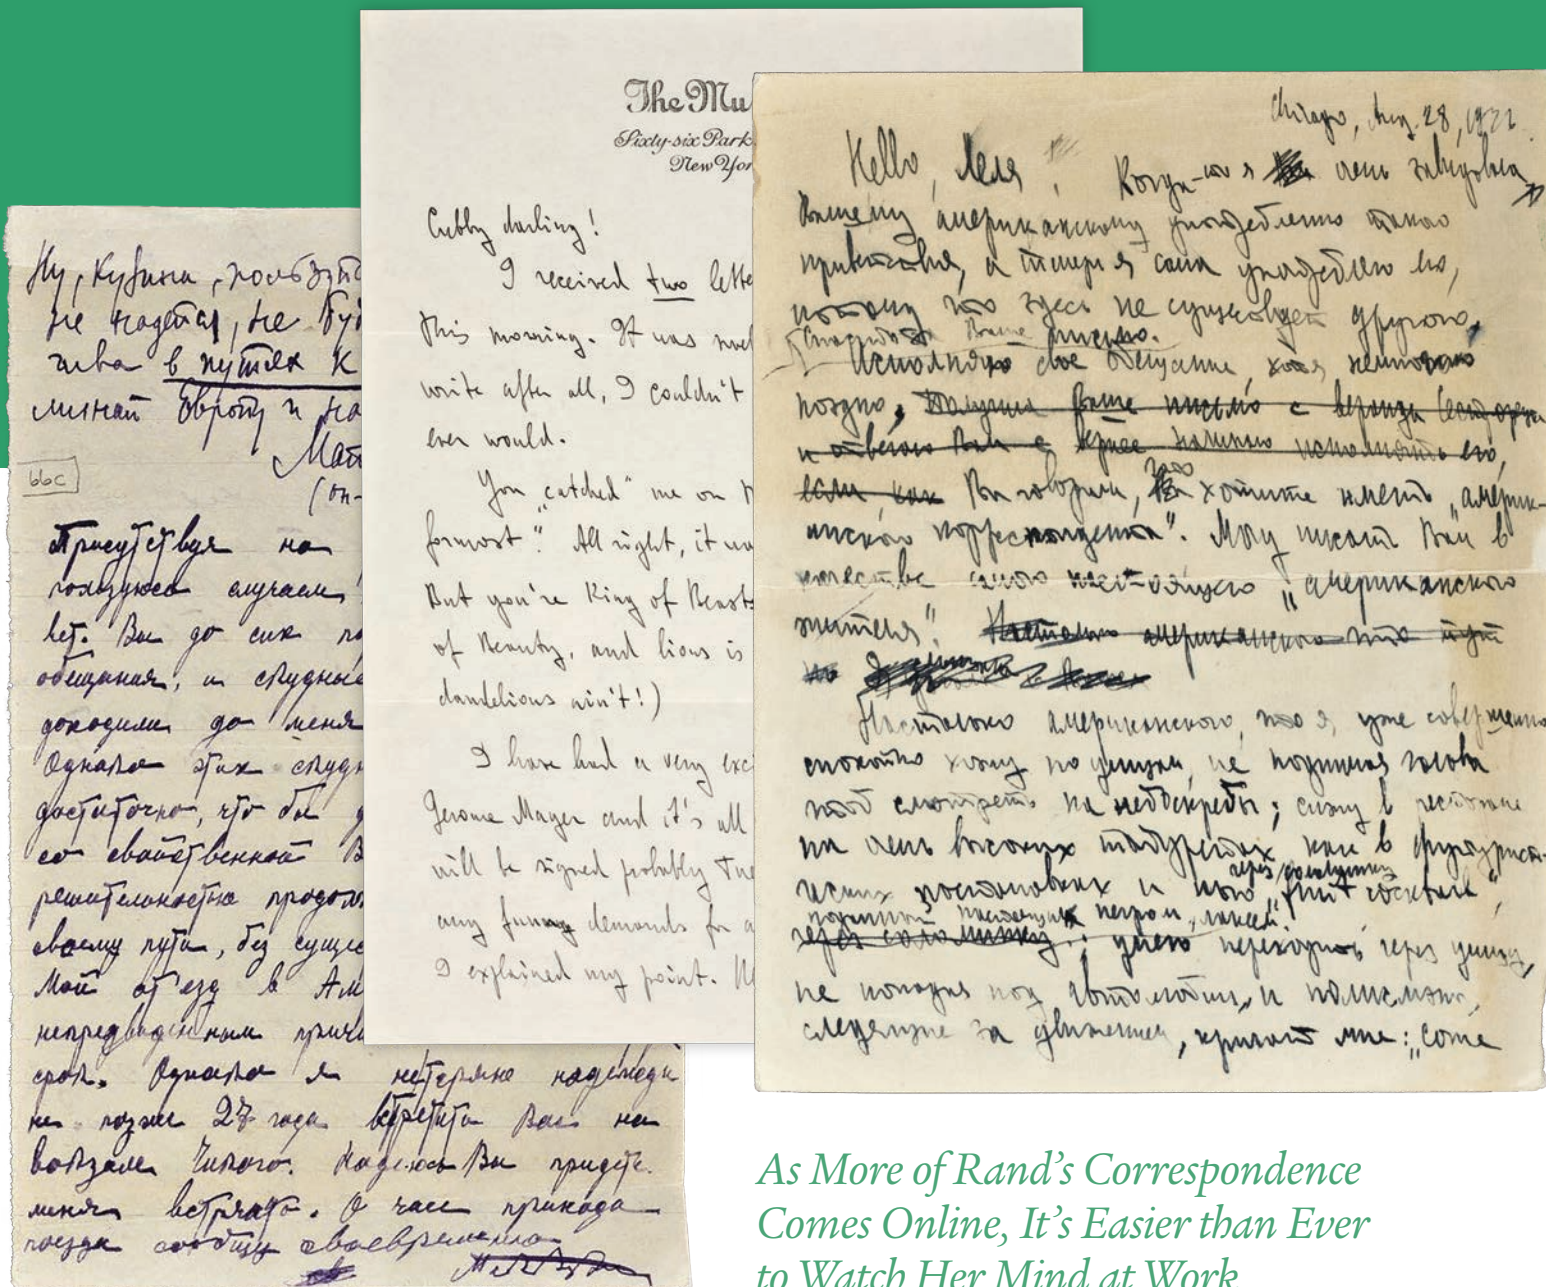 Ну, Кузина,
не надейтесь, не
в путях к
66c
Присутствуя на
пользуюсь случаем
вет. Вы до сих по
обещания, и скудные
доходили до меня
Однако этих скудн
достаточно, что бы
со свойственной В
решительностью продолж
своему пути, без
Мой от'езд в Ам
непредвиденным причи
срок. Однако я не теряю надежды
не позже 27 года встретить Вас на
вокзале Чикаго. Надеюсь Вы придете
меня встречать. О часе прихода
поезда сообщу своевременно
The Mu
Sixty-six Park
New Yor
Cubby darling!
I received two lette
this morning. It was
write after all, I couldn't
ever would.
You „catched" me on
formost." All right, it wa
But you're King of Beasts
of Beauty, and lions is
dandelions ain't!)
I have had a very exc
Jerome Mayer and it's all
will be signed probably Tue
any funny demands for a
I explained my point.
Chicago, Aug. 28, 192
Hello, Леля, Когда-то я очень завидовала
Вашему американскому употреблению такого
приветствия, а теперь я сама употребляю его,
потому что здесь не существует другого.
Ваше письмо.
Исполняю свое обещание, хотя немного
поздно, Получила Ваше письмо с
если, как Вы говорили, что хотите иметь „америк-
анского корреспондента". Могу писать Вам в
качестве самого настоящего „американского
жителя". Настолько американского что
Настолько американского, что я, уже совершенно
спокойно хожу по улицам, не поднимая голова
чтоб смотреть на небоскребы; сижу в ресторане
на очень высоких табуретах, как в футуристи-
ческих постановках и пью „фрут коктайль",
через соломинку
поданный настоящим негром, лакей.
через соломинку.; умею переходить через улицу,
не попадая под автомобили, и полисмены,
следящие за движением, кричат мне: „Come
As More of Rand's Correspondence
Comes Online, It's Easier than Ever
to Watch Her Mind at Work